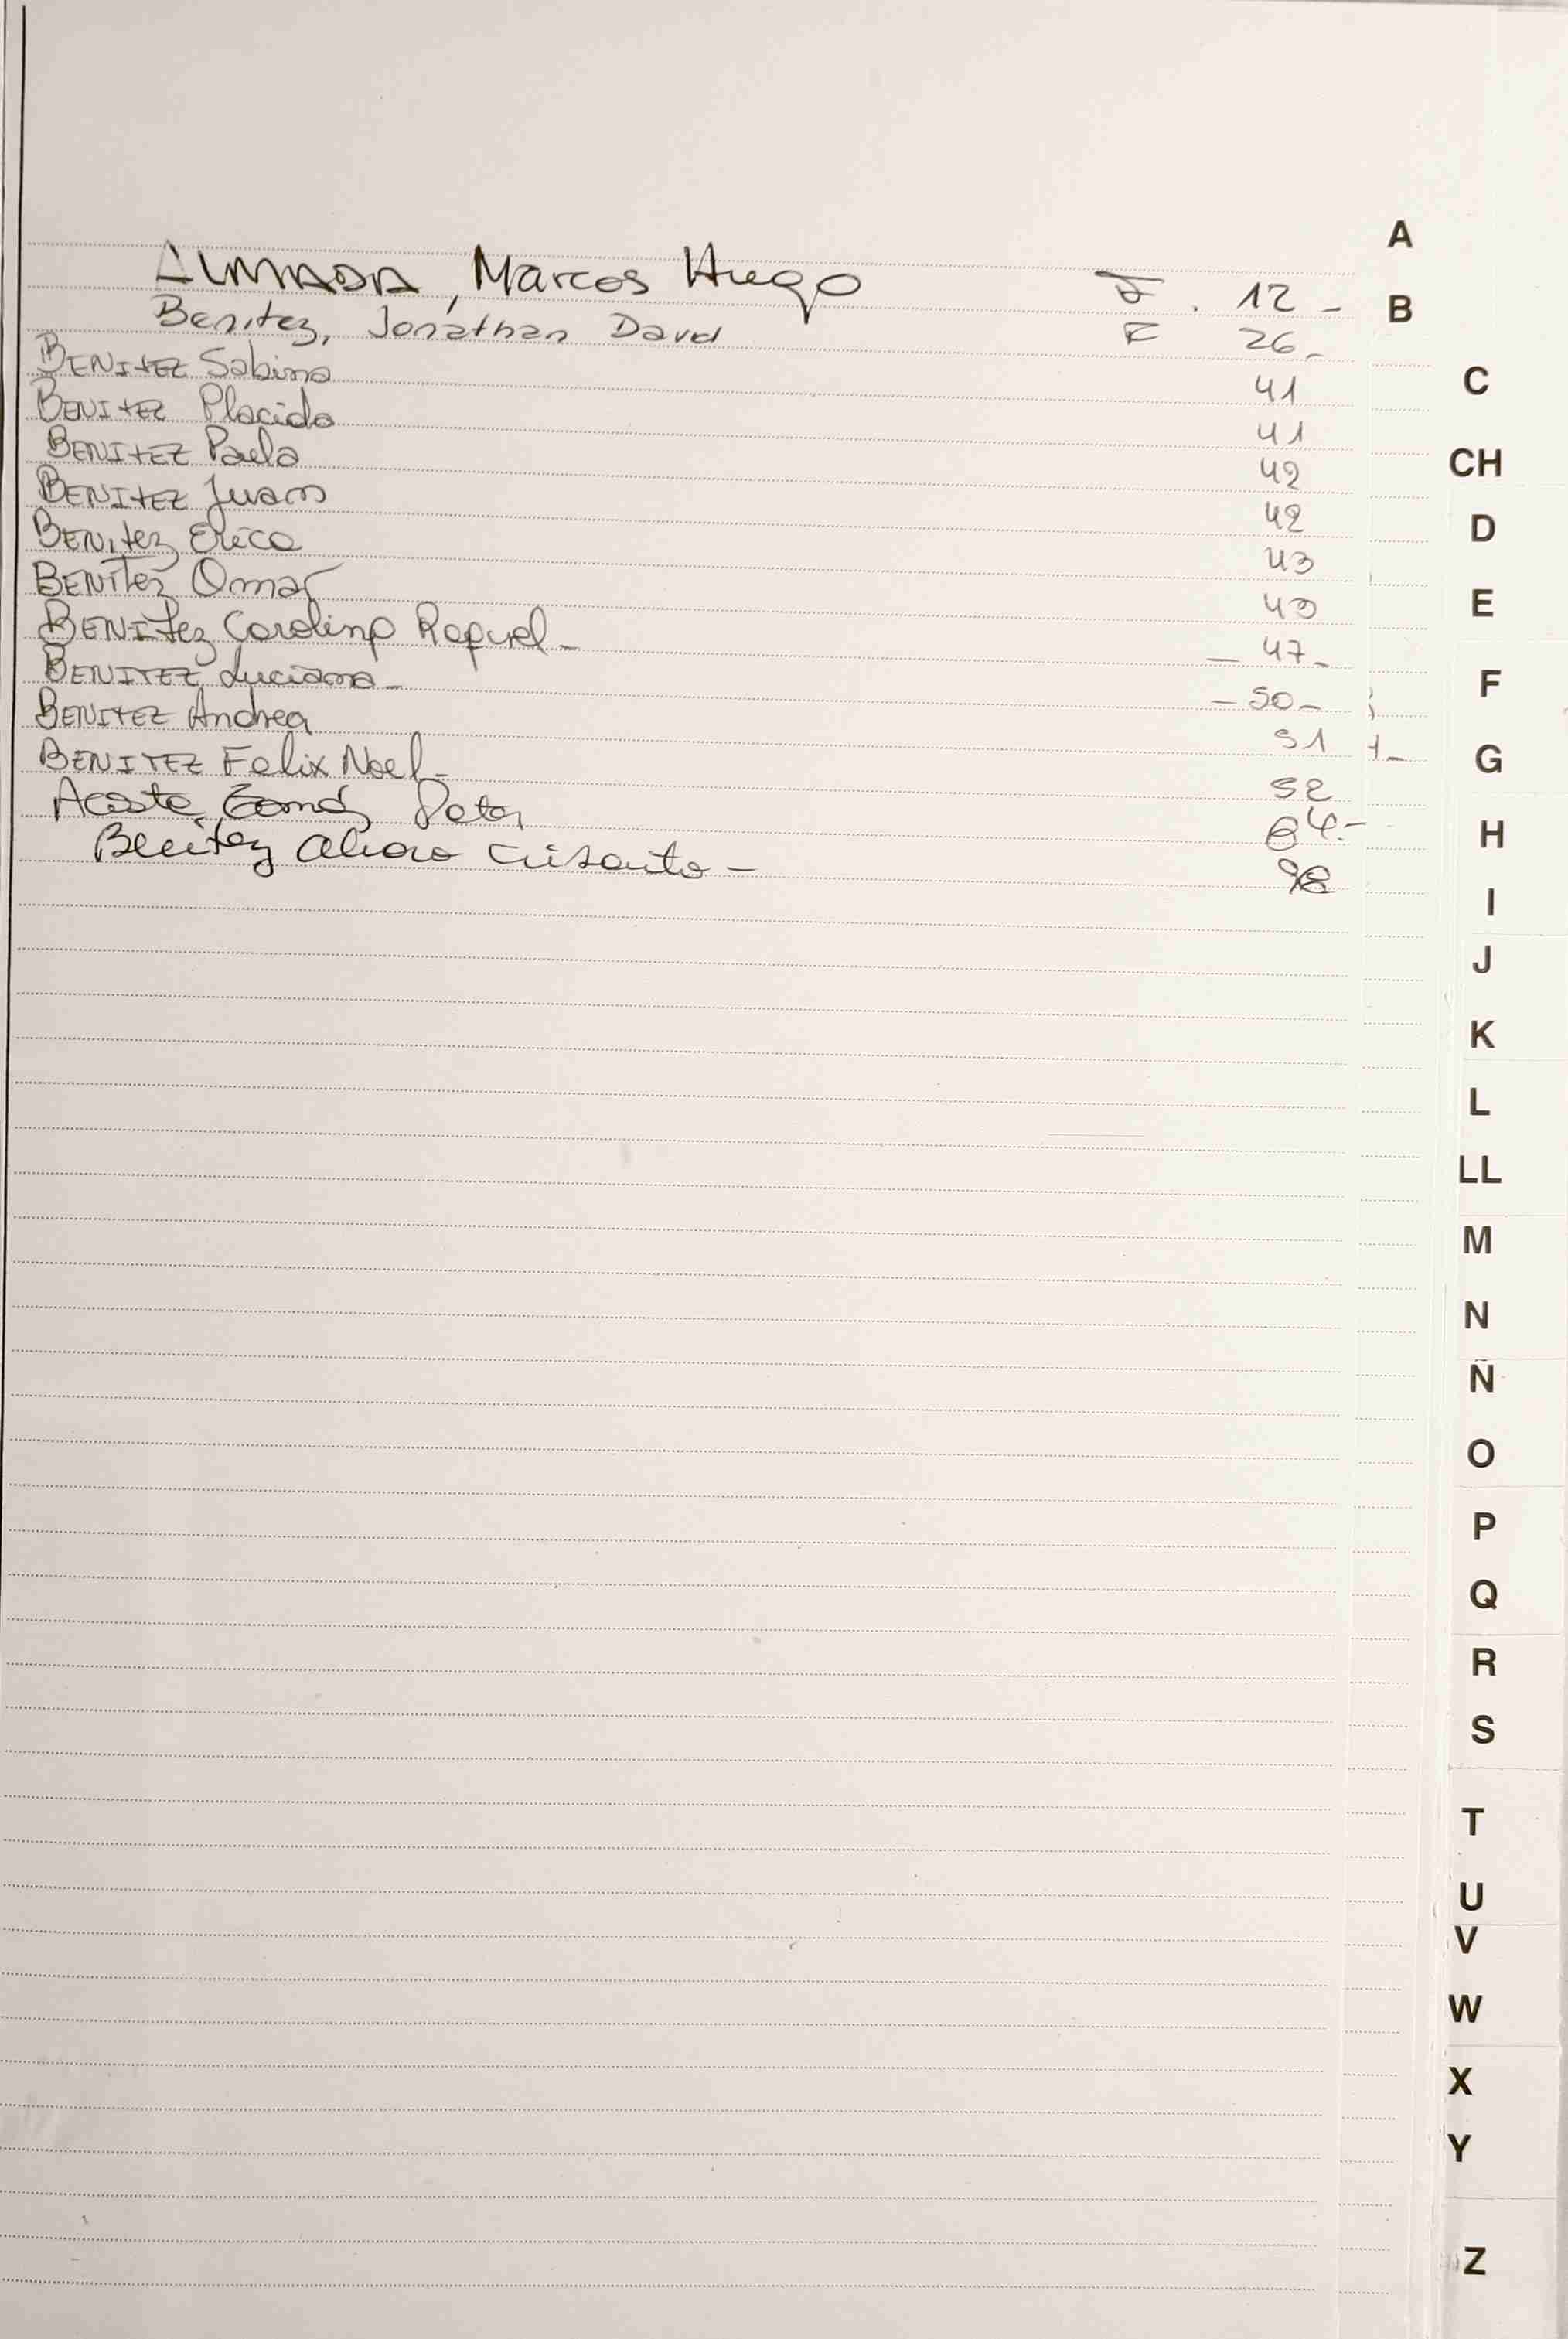 ALMADA, Marcos Hugo F. 12 -
Benitez, Jonathan David F 26 -
BENITEZ Sabina 41
BENITEZ Placido 41
BENITEZ Paula 42
BENITEZ Juan 42
BENITEZ Erica 43
BENITEZ Omar
BENITEZ Carolina Raquel - - 47 -
BENITEZ Luciana - - 50 -
BENITEZ Andrea 51
BENITEZ Felix Noel - 52
Acosta 64 -
Benitez 98
A
B
C
CH
D
E
F
G
H
I
J
K
L
LL
M
N
Ñ
O
P
Q
R
S
T
U
V
W
X
Y
Z